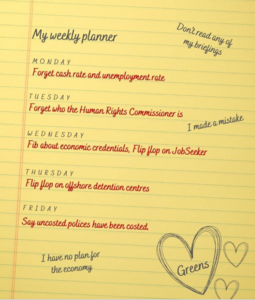 My weekly planner
Don't read any of
my briefings
MONDAY
Forget cash rate and unemployment rate
TUESDAY
Forget who the Human Rights Commissioner is
I made a mistake
WEDNESDAY
Fib about economic credentials, Flip flop on JobSeeker
THURSDAY
Flip flop on offshore detention centres
FRIDAY
Say uncosted polices have been costed.
I have no plan for
the economy
Greens